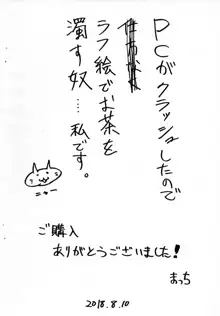 PCがクラッシュしたので
ラフ絵でお茶を
濁す奴……私です。
ニャー
ご購入
ありがとうございました!
まっち
2018.8.10